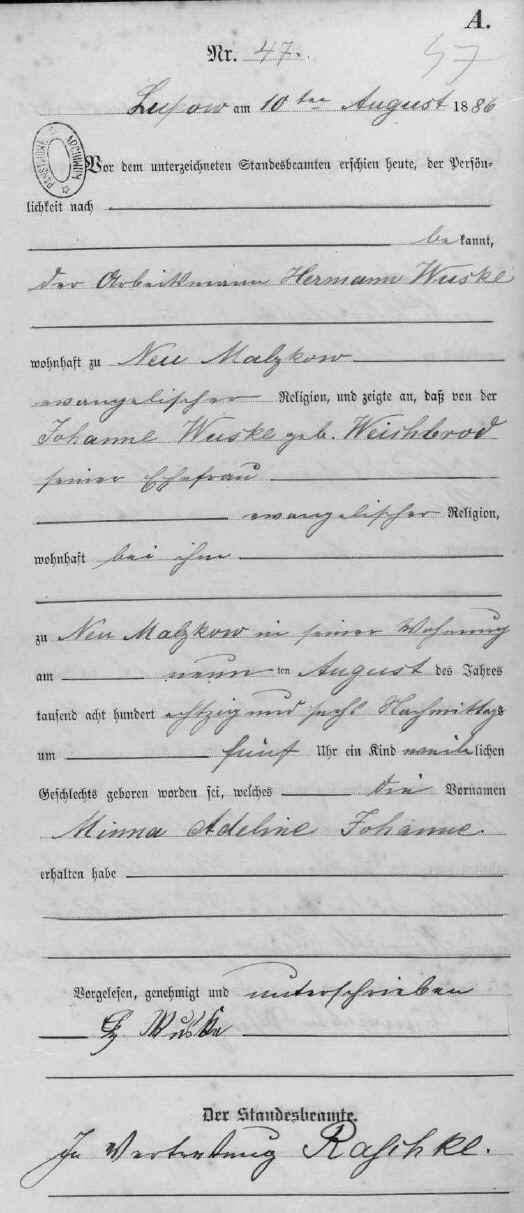 A.
Nr. 47.
47
Lupow am 10ten August 1886
Vor dem unterzeichneten Standesbeamten erschien heute, der Persön-
lichkeit nach
bekannt,
der Arbeitsmann Hermann Wuske
wohnhaft zu Neu Malzkow
evangelischer Religion, und zeigte an, daß von der
Johanne Wuske geb. Weishbrod
seiner Ehefrau
evangelischer Religion,
wohnhaft bei ihm
zu Neu Malzkow in seiner Wohnung
am neun ten August des Jahres
tausend acht hundert achtzig und sechs Nachmittags
um fünf Uhr ein Kind weiblichen
Geschlechts geboren worden sei, welches die Vornamen
Minna Adeline Johanne.
erhalten habe
Vorgelesen, genehmigt und unterschrieben
Wuske
Der Standesbeamte.
In Vertretung Raschke.